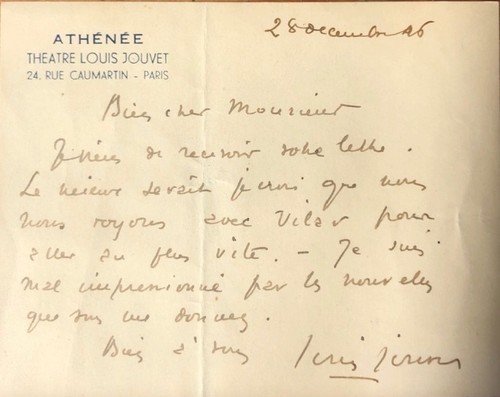 ATHÉNÉE
THEATRE LOUIS JOUVET
24, RUE CAUMARTIN - PARIS
28 décembre 46
Bien cher Monsieur
Je viens de recevoir votre lettre.
Le mieux serait je crois que nous
nous voyons avec Vilar pour
aller au plus vite. - Je suis
mal impressionné par les nouvelles
que vous me donnez.
Bien à vous Louis Jouvet